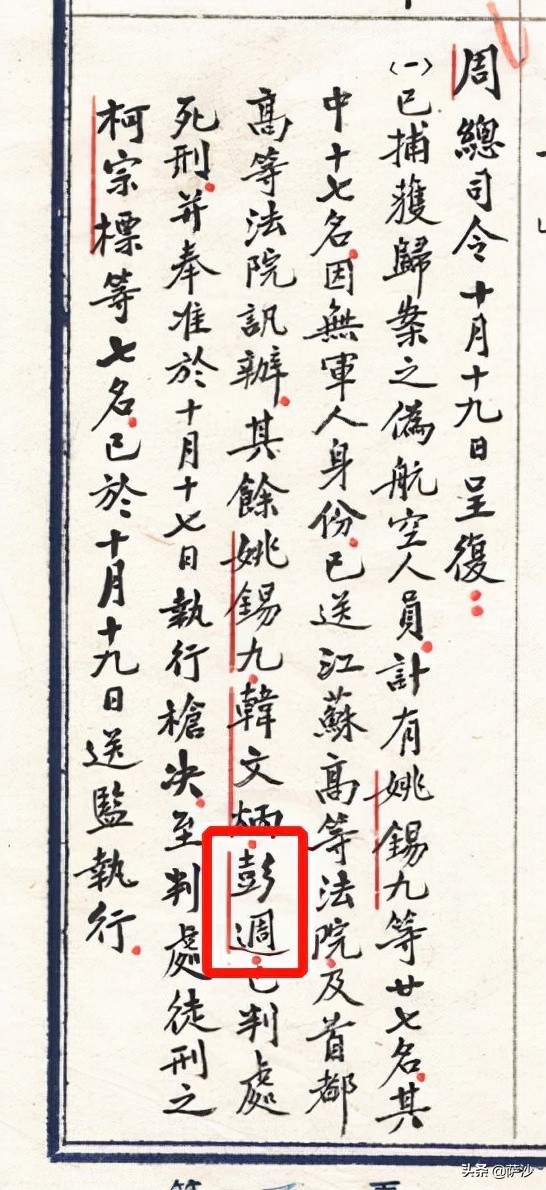 周總司令十月十九日呈復：
(一)已捕獲歸案之偽航空人員.計有姚錫九等廿七名.其
中十七名.因無軍人身份.已送江蘇高等法院.及首都
高等法院訊辦.其餘姚錫九.韓文炳.彭週.已判處
死刑.并奉准於十月十七日執行槍决.至判處徒刑之
柯宗標等七名.已於十月十九日送監執行.
头条 @萨沙